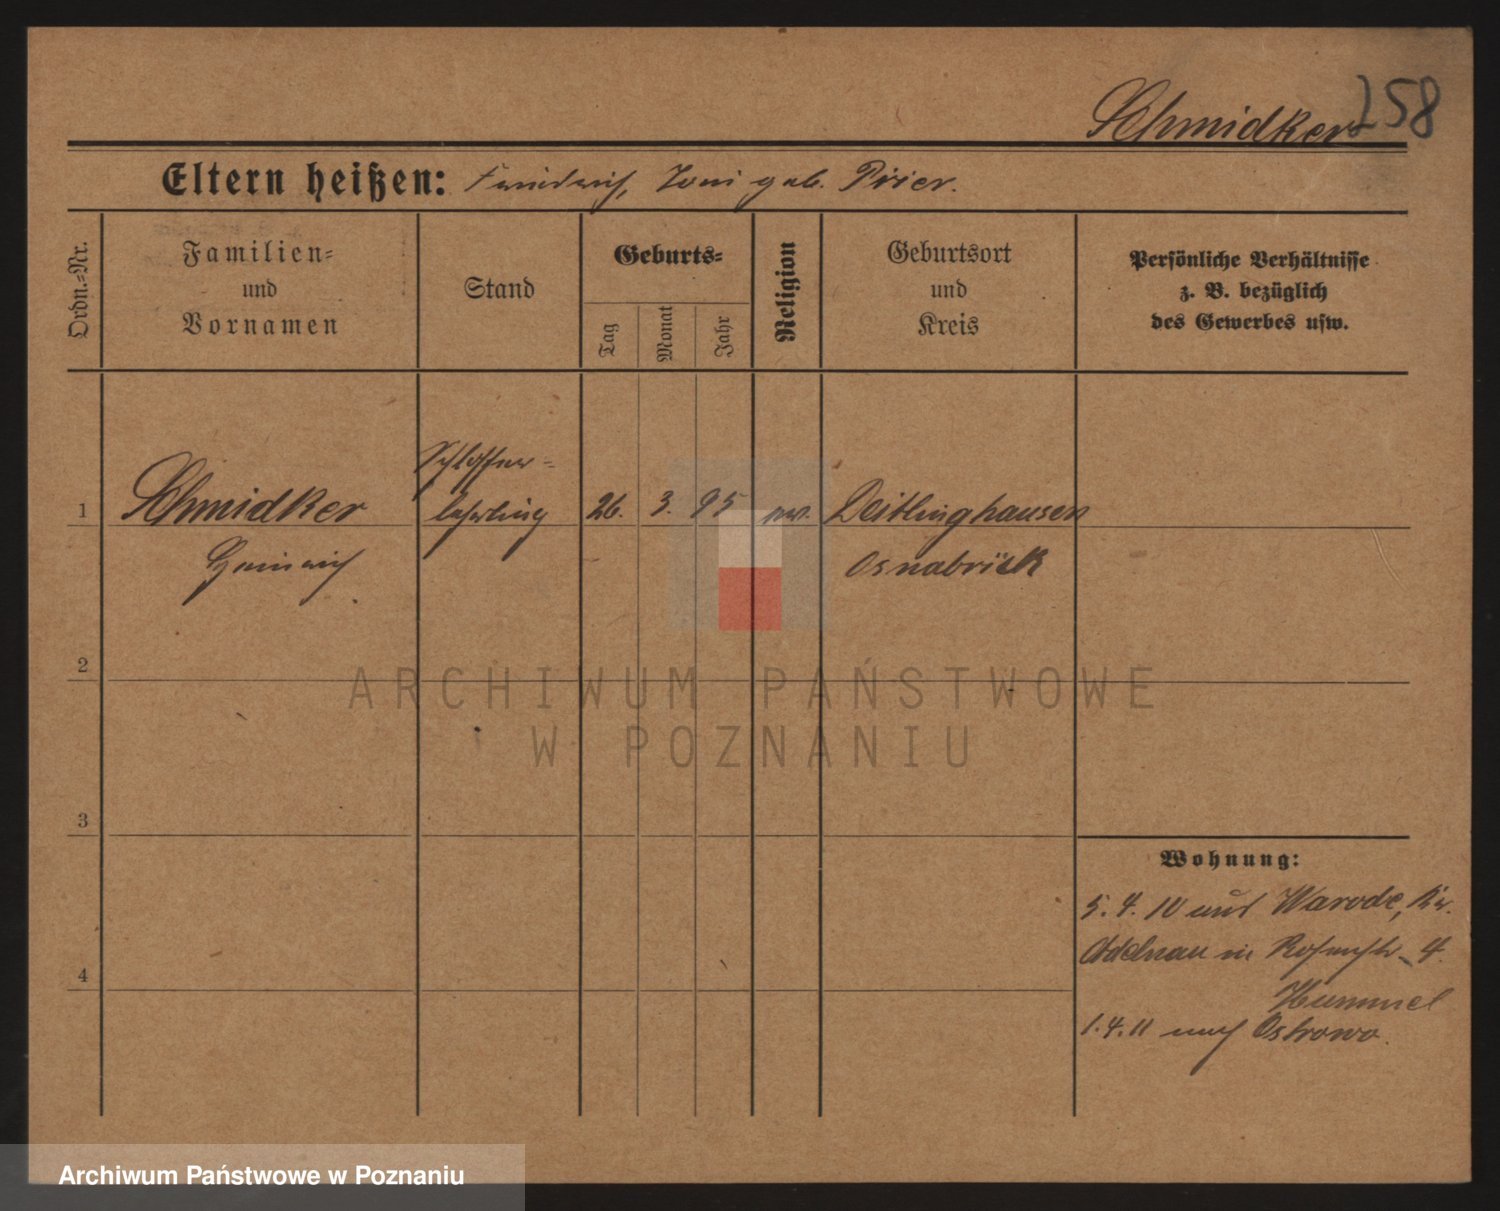 258
Schmidker
Eltern heißen: Friedrich, geb. Prier.
Ordn.-Nr.
Familien-
und
Vornamen
Stand
Geburts-
Tag
Monat
Jahr
Religion
Geburtsort
und
Kreis
Persönliche Verhältnisse
z. B. bezüglich
des Gewerbes usw.
1
Schmidker
Heinrich
Schlosser-
lehrling
26. 3. 95
ev.
Deitlinghausen
Osnabrück
2
3
4
Wohnung:
5. 4. 10 aus Warode, Kr.
Adelnau in Rosenstr. 4.
Hummel
1. 4. 11 nach Ostrowo.
ARCHIWUM PAŃSTWOWE
W POZNANIU
Archiwum Państwowe w Poznaniu